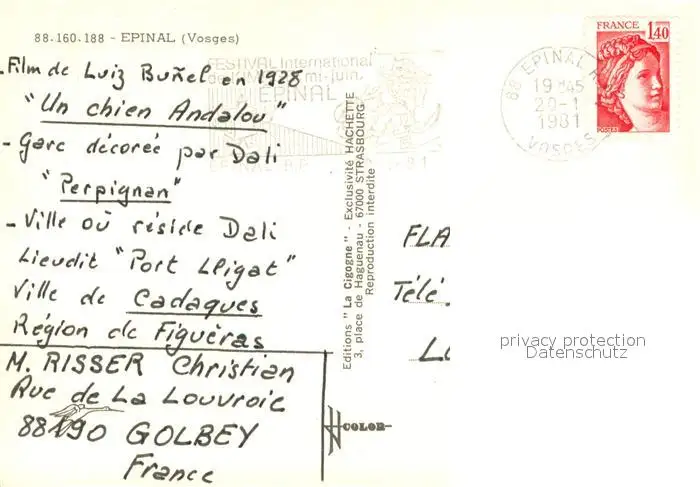 88.160.188 - EPINAL (Vosges)
- Film de Luiz Buñel en 1928
"Un chien Andalou"
- Gare décorée par Dali
"Perpignan"
- Ville où réside Dali
Lieudit "Port Lligat"
Ville de Cadaques
Région de Figuéras
M. RISSER Christian
Rue de La Louvroie
88190 GOLBEY
France
FESTIVAL International
mi-juin.
EPINAL
Editions "La Cigogne" - Exclusivité HACHETTE
3, place de Haguenau - 67000 STRASBOURG
Reproduction interdite
COLOR
FRANCE
1,40
POSTES
88 EPINAL
19 H45
20-1
1981
VOSGES
FLA
Télé.
privacy protection
Datenschutz